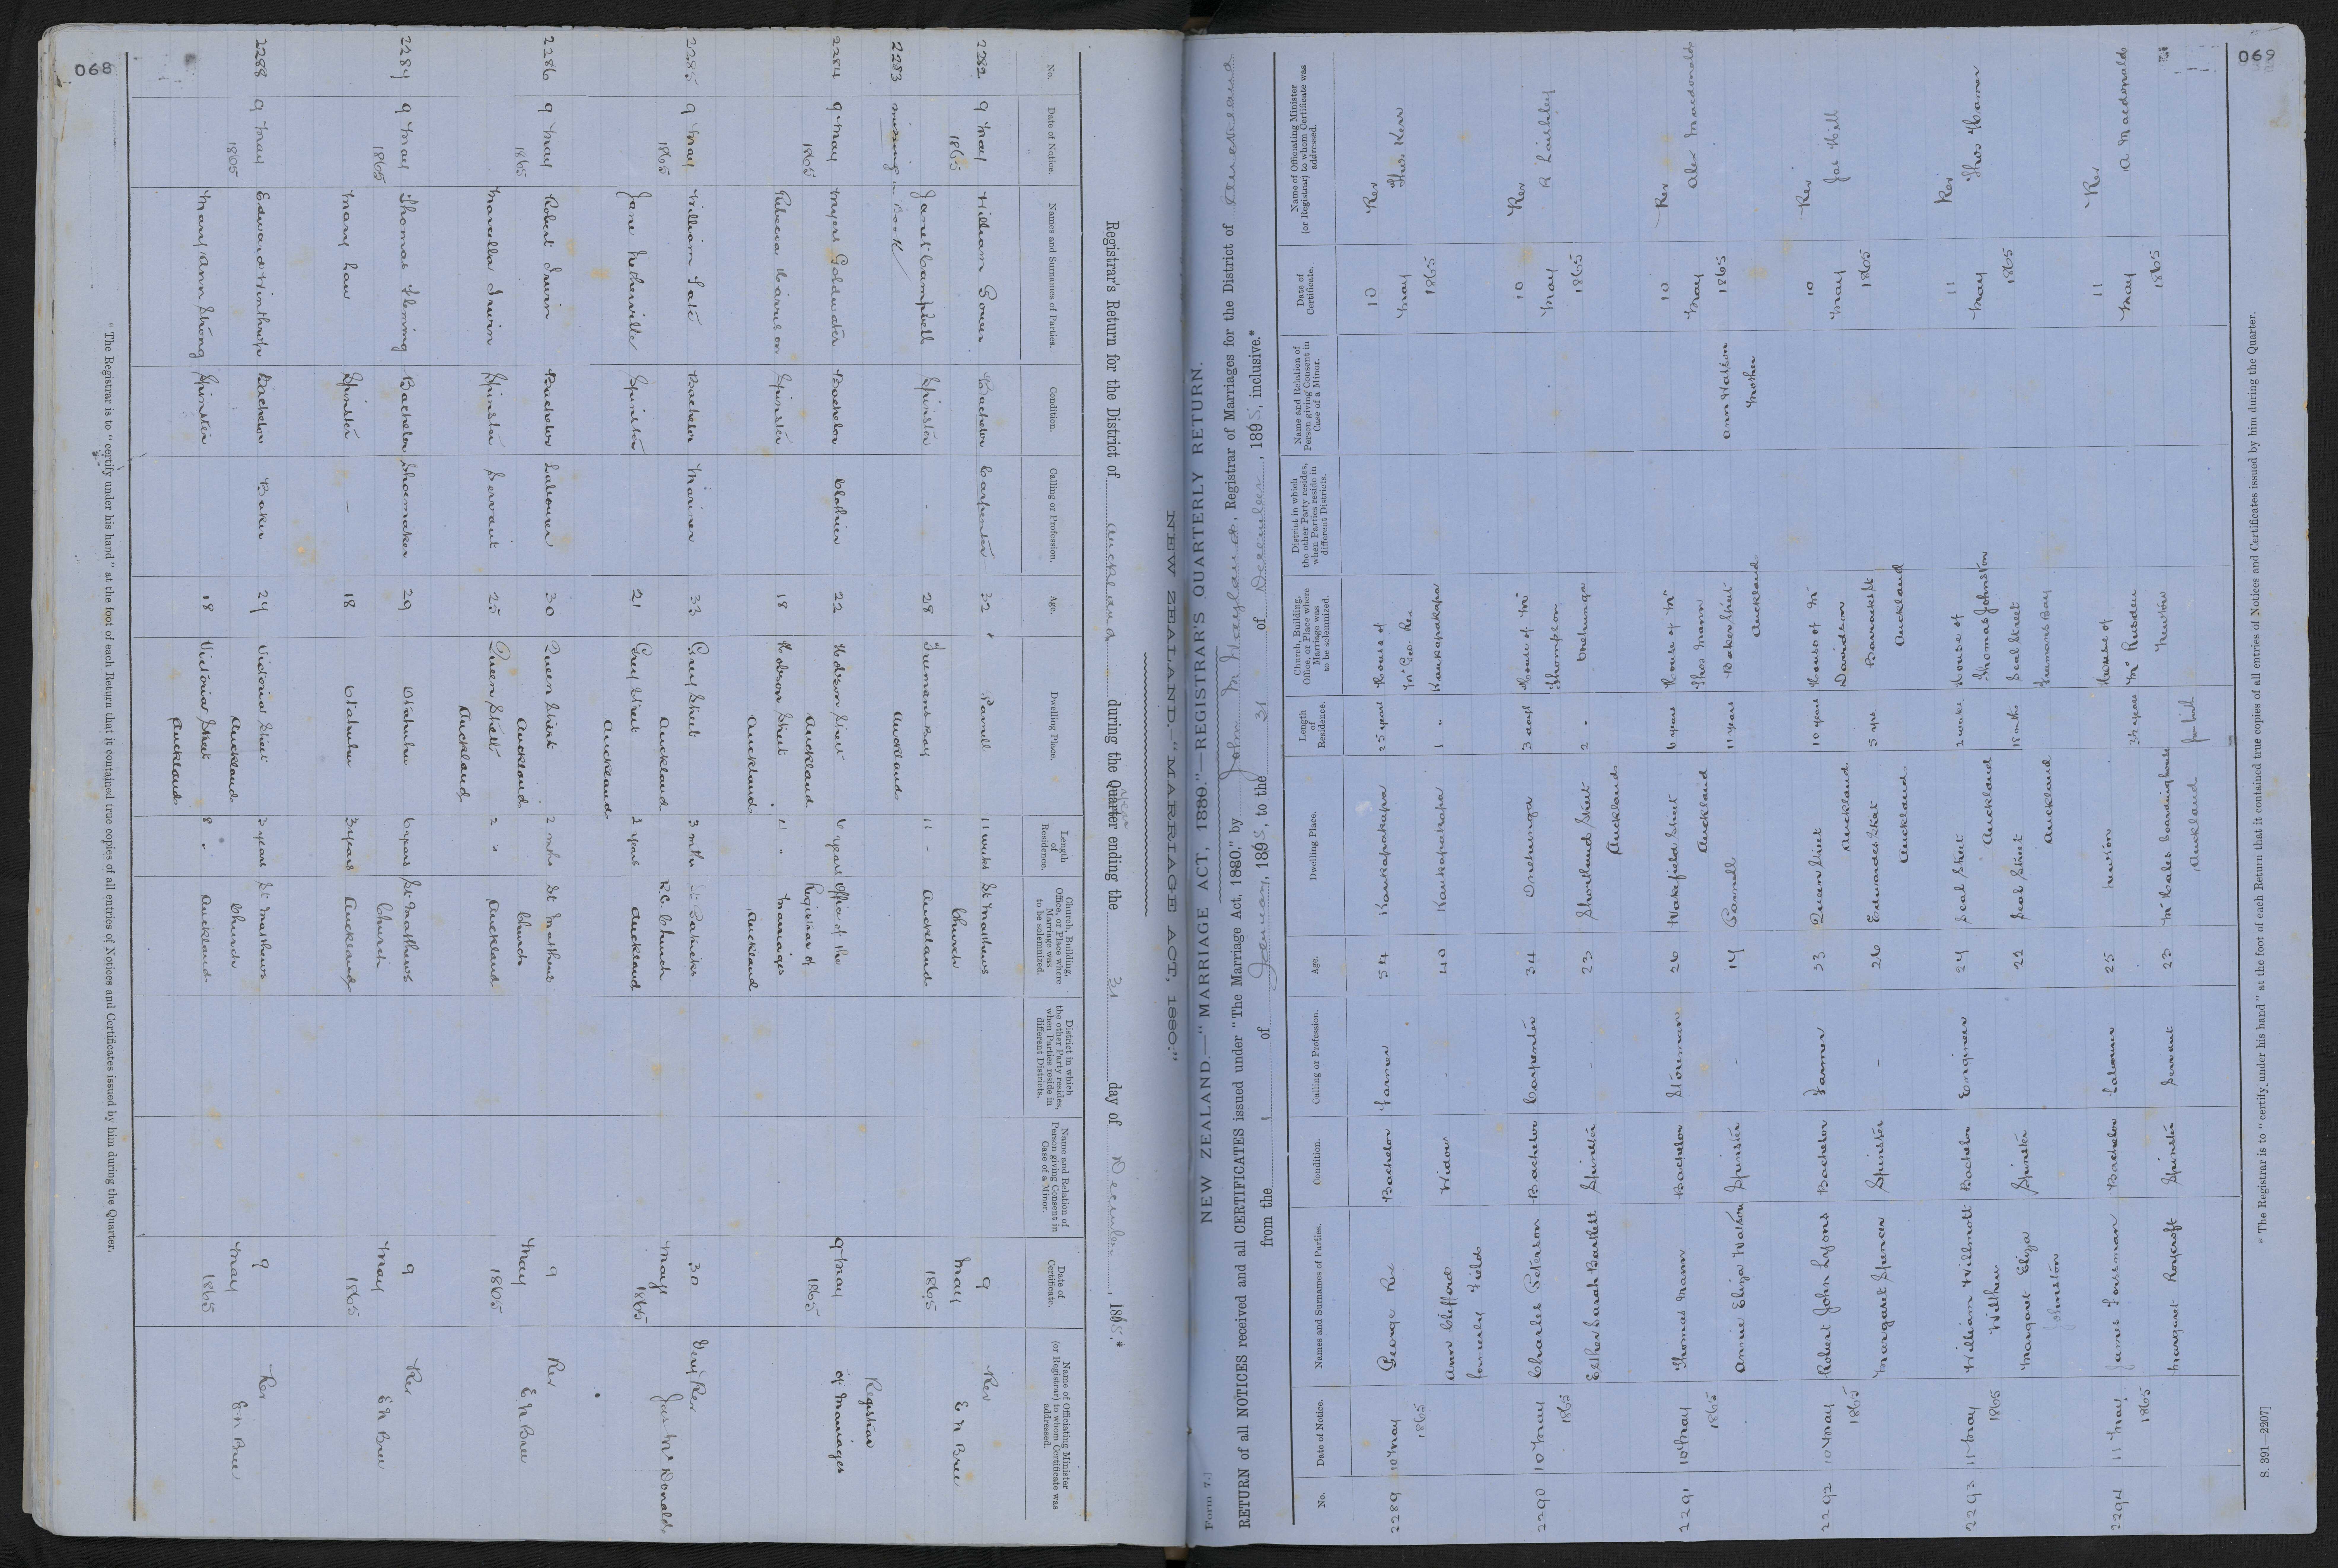 068
NEW ZEALAND.—"MARRIAGE ACT, 1880."
Registrar's Return for the District of Auckland during the Quarter year ending the 31 day of December, 1865.*
No.
Date of Notice.
Names and Surnames of Parties.
Condition.
Calling or Profession.
Age.
Dwelling Place.
Length of Residence.
Church, Building, Office, or Place where Marriage was to be solemnized.
District in which the other Party resides, when Parties reside in different Districts.
Name and Relation of Person giving Consent in Case of a Minor.
Date of Certificate.
Name of Officiating Minister (or Registrar) to whom Certificate was addressed.
2282 9 May William Gower Bachelor Carpenter 32 Parnell 11 weeks St Matthews 9 Rev
1865 Church May E N Bree
Janet Campbell Spinster - 28 Freemans Bay 11 - Auckland 1865
Auckland
2283 missing in Book
2284 9 May Myers Goldwater Bachelor Clothier 22 Hobson Street 6 years Office of the 9 May Registrar
1865 Auckland Registrar of 1865 of Marriages
Rebecca Spinster 18 Hobson Street 11 " Marriages
Auckland Auckland
2285 9 May William Tate Bachelor Mariner 33 Grey Street 3 mths St Patricks 30 Very Rev
1865 Auckland R.C. Church May Jas McDonald
Jane Netherville Spinster 21 Grey Street 2 years Auckland 1865
Auckland
2286 9 May Robert Irwin Bachelor Labourer 30 Queen Street 2 mths St Matthews 9 Rev
1865 Auckland Church May E N Bree
Marcella Irwin Spinster Servant 25 Queen Street 2 " Auckland 1865
Auckland
2287 9 May Thomas Fleming Bachelor Shoemaker 29 Otahuhu 6 years St Mathews 9 Rev
1865 Church May E N Bree
Mary Law Spinster - 18 Otahuhu 3 years Auckland 1865
2288 9 May Edward Winthrop Bachelor Baker 27 Victoria Street 3 years St Matthews 9 Rev
1865 Auckland Church May E N Bree
Mary Ann Strong Spinster 18 Victoria Street 8 " Auckland 1865
Auckland
* The Registrar is to "certify under his hand" at the foot of each Return that it contained true copies of all entries of Notices and Certificates issued by him during the Quarter.
069
Form 7.]
NEW ZEALAND.—"MARRIAGE ACT, 1880."—REGISTRAR'S QUARTERLY RETURN.
RETURN of all NOTICES received and all CERTIFICATES issued under "The Marriage Act, 1880," by John M Wayland, Registrar of Marriages for the District of Auckland
from the 1 of January, 1865, to the 31 of December, 1865, inclusive.*
No.
Date of Notice.
Names and Surnames of Parties.
Condition.
Calling or Profession.
Age.
Dwelling Place.
Length of Residence.
Church, Building, Office, or Place where Marriage was to be solemnized.
District in which the other Party resides, when Parties reside in different Districts.
Name and Relation of Person giving Consent in Case of a Minor.
Date of Certificate.
Name of Officiating Minister (or Registrar) to whom Certificate was addressed.
2289 10 May George Rex Bachelor Farmer 54 Kaukapakapa 25 years House of 10 Rev
1865 Mr Geo Rex May Thos Kerr
Ann Clifford Widow - 40 Kaukapakapa 1 " Kaukapakapa 1865
formerly Fields
2290 10 May Charles Peterson Bachelor Carpenter 34 Onehunga 3 days House of Mr 10 Rev
1865 Thompson May R Laishley
Esther Sarah Bartlett Spinster - 23 Shortland Street 2 " Onehunga 1865
Auckland
2291 10 May Thomas Mann Bachelor Storeman 26 Wakefield Street 6 years House of Mr 10 Rev
1865 Auckland Thos Mann May Alex Macdonald
Annie Eliza Watson Spinster - 17 Parnell 11 years Baker Street Ann Watson 1865
Auckland Mother
2292 10 May Robert John Lyons Bachelor Farmer 33 Queen Street 10 years House of Mr 10 Rev
1865 Auckland Davidson May Jas Hill
Margaret Spencer Spinster - 26 Edwardes Street 5 yrs Barracks St 1865
Auckland Auckland
2293 11 May William Willmott Bachelor Engineer 27 Seal Street 2 weeks House of 11 Rev
1865 Auckland Thomas Johnston May Thos Hamer
Margaret Eliza Spinster 22 Seal Street 18 mths Seal Street 1865
Johnston Auckland Freemans Bay
2294 11 May James Bachelor Labourer 25 Newton 3½ years House of 11 Rev
1865 Mr Rusden May A Macdonald
Margaret Roycroft Spinster Servant 23 boardinghouse Newton 1865
Auckland from birth
* The Registrar is to "certify under his hand" at the foot of each Return that it contained true copies of all entries of Notices and Certificates issued by him during the Quarter.
S. 391—2207]